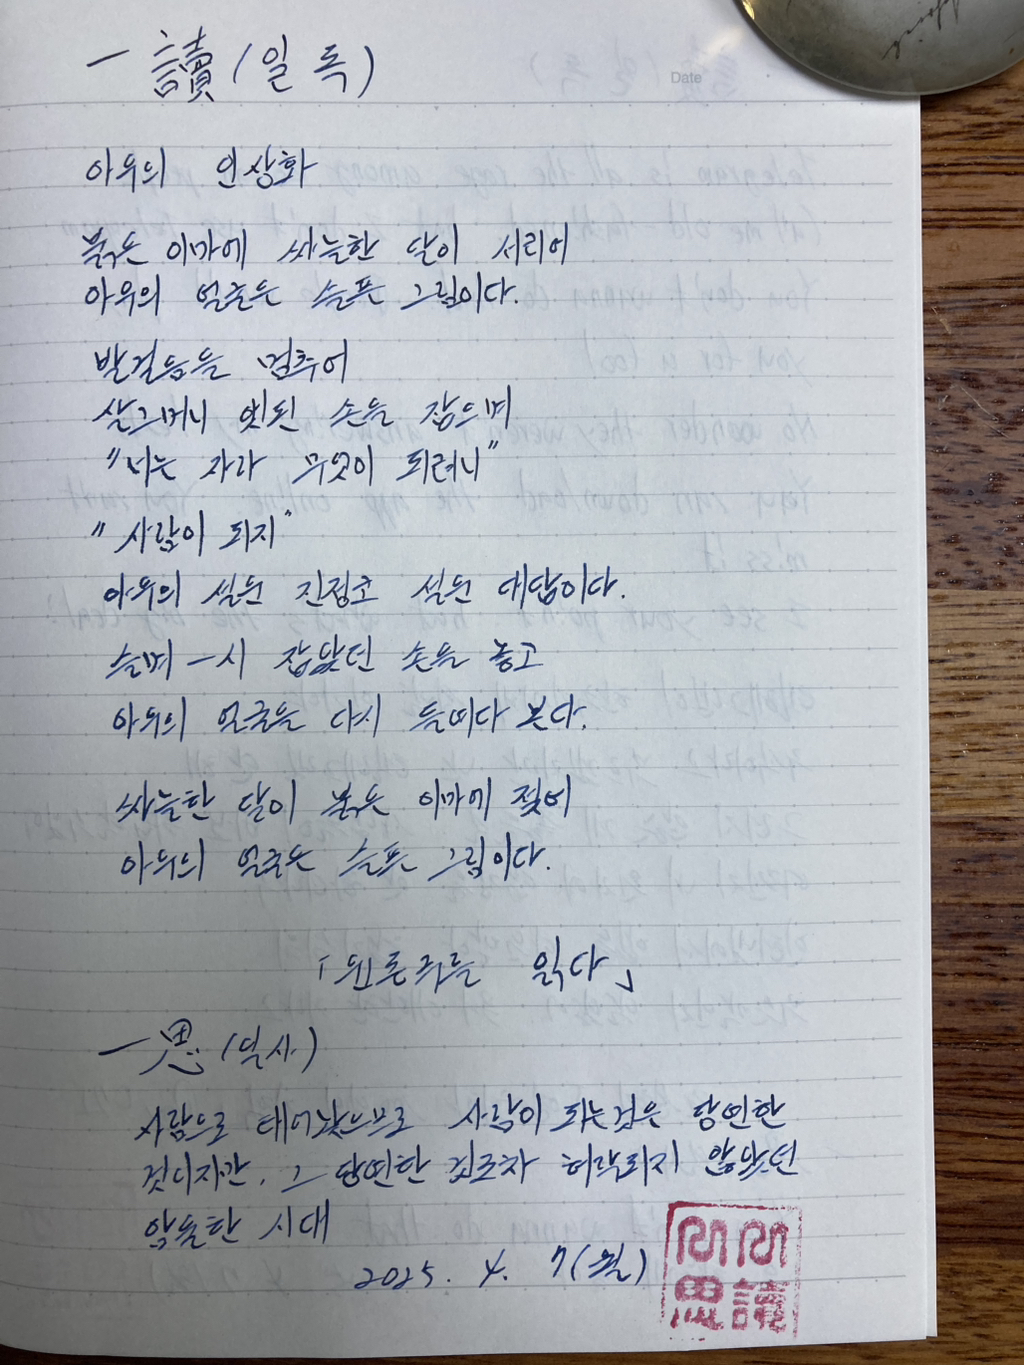 一讀(일독)
Date
아우의 인상화
붉은 이마에 싸늘한 달이 서리어
아우의 얼굴은 슬픈 그림이다.
발걸음을 멈추어
살그머니 앳된 손을 잡으며
"너는 자라 무엇이 되려니"
"사람이 되지"
아우의 설운 진정코 설운 대답이다.
슬며-시 잡았던 손을 놓고
아우의 얼굴을 다시 들여다 본다.
싸늘한 달이 붉은 이마에 젖어
아우의 얼굴은 슬픈 그림이다.
「윤동주를 읽다」
一思(일사)
사람으로 태어났으므로 사람이 되는것은 당연한
것이지만, 그 당연한 것조차 허락되지 않았던
암울한 시대
2025. 4. 7(월)
思 讀